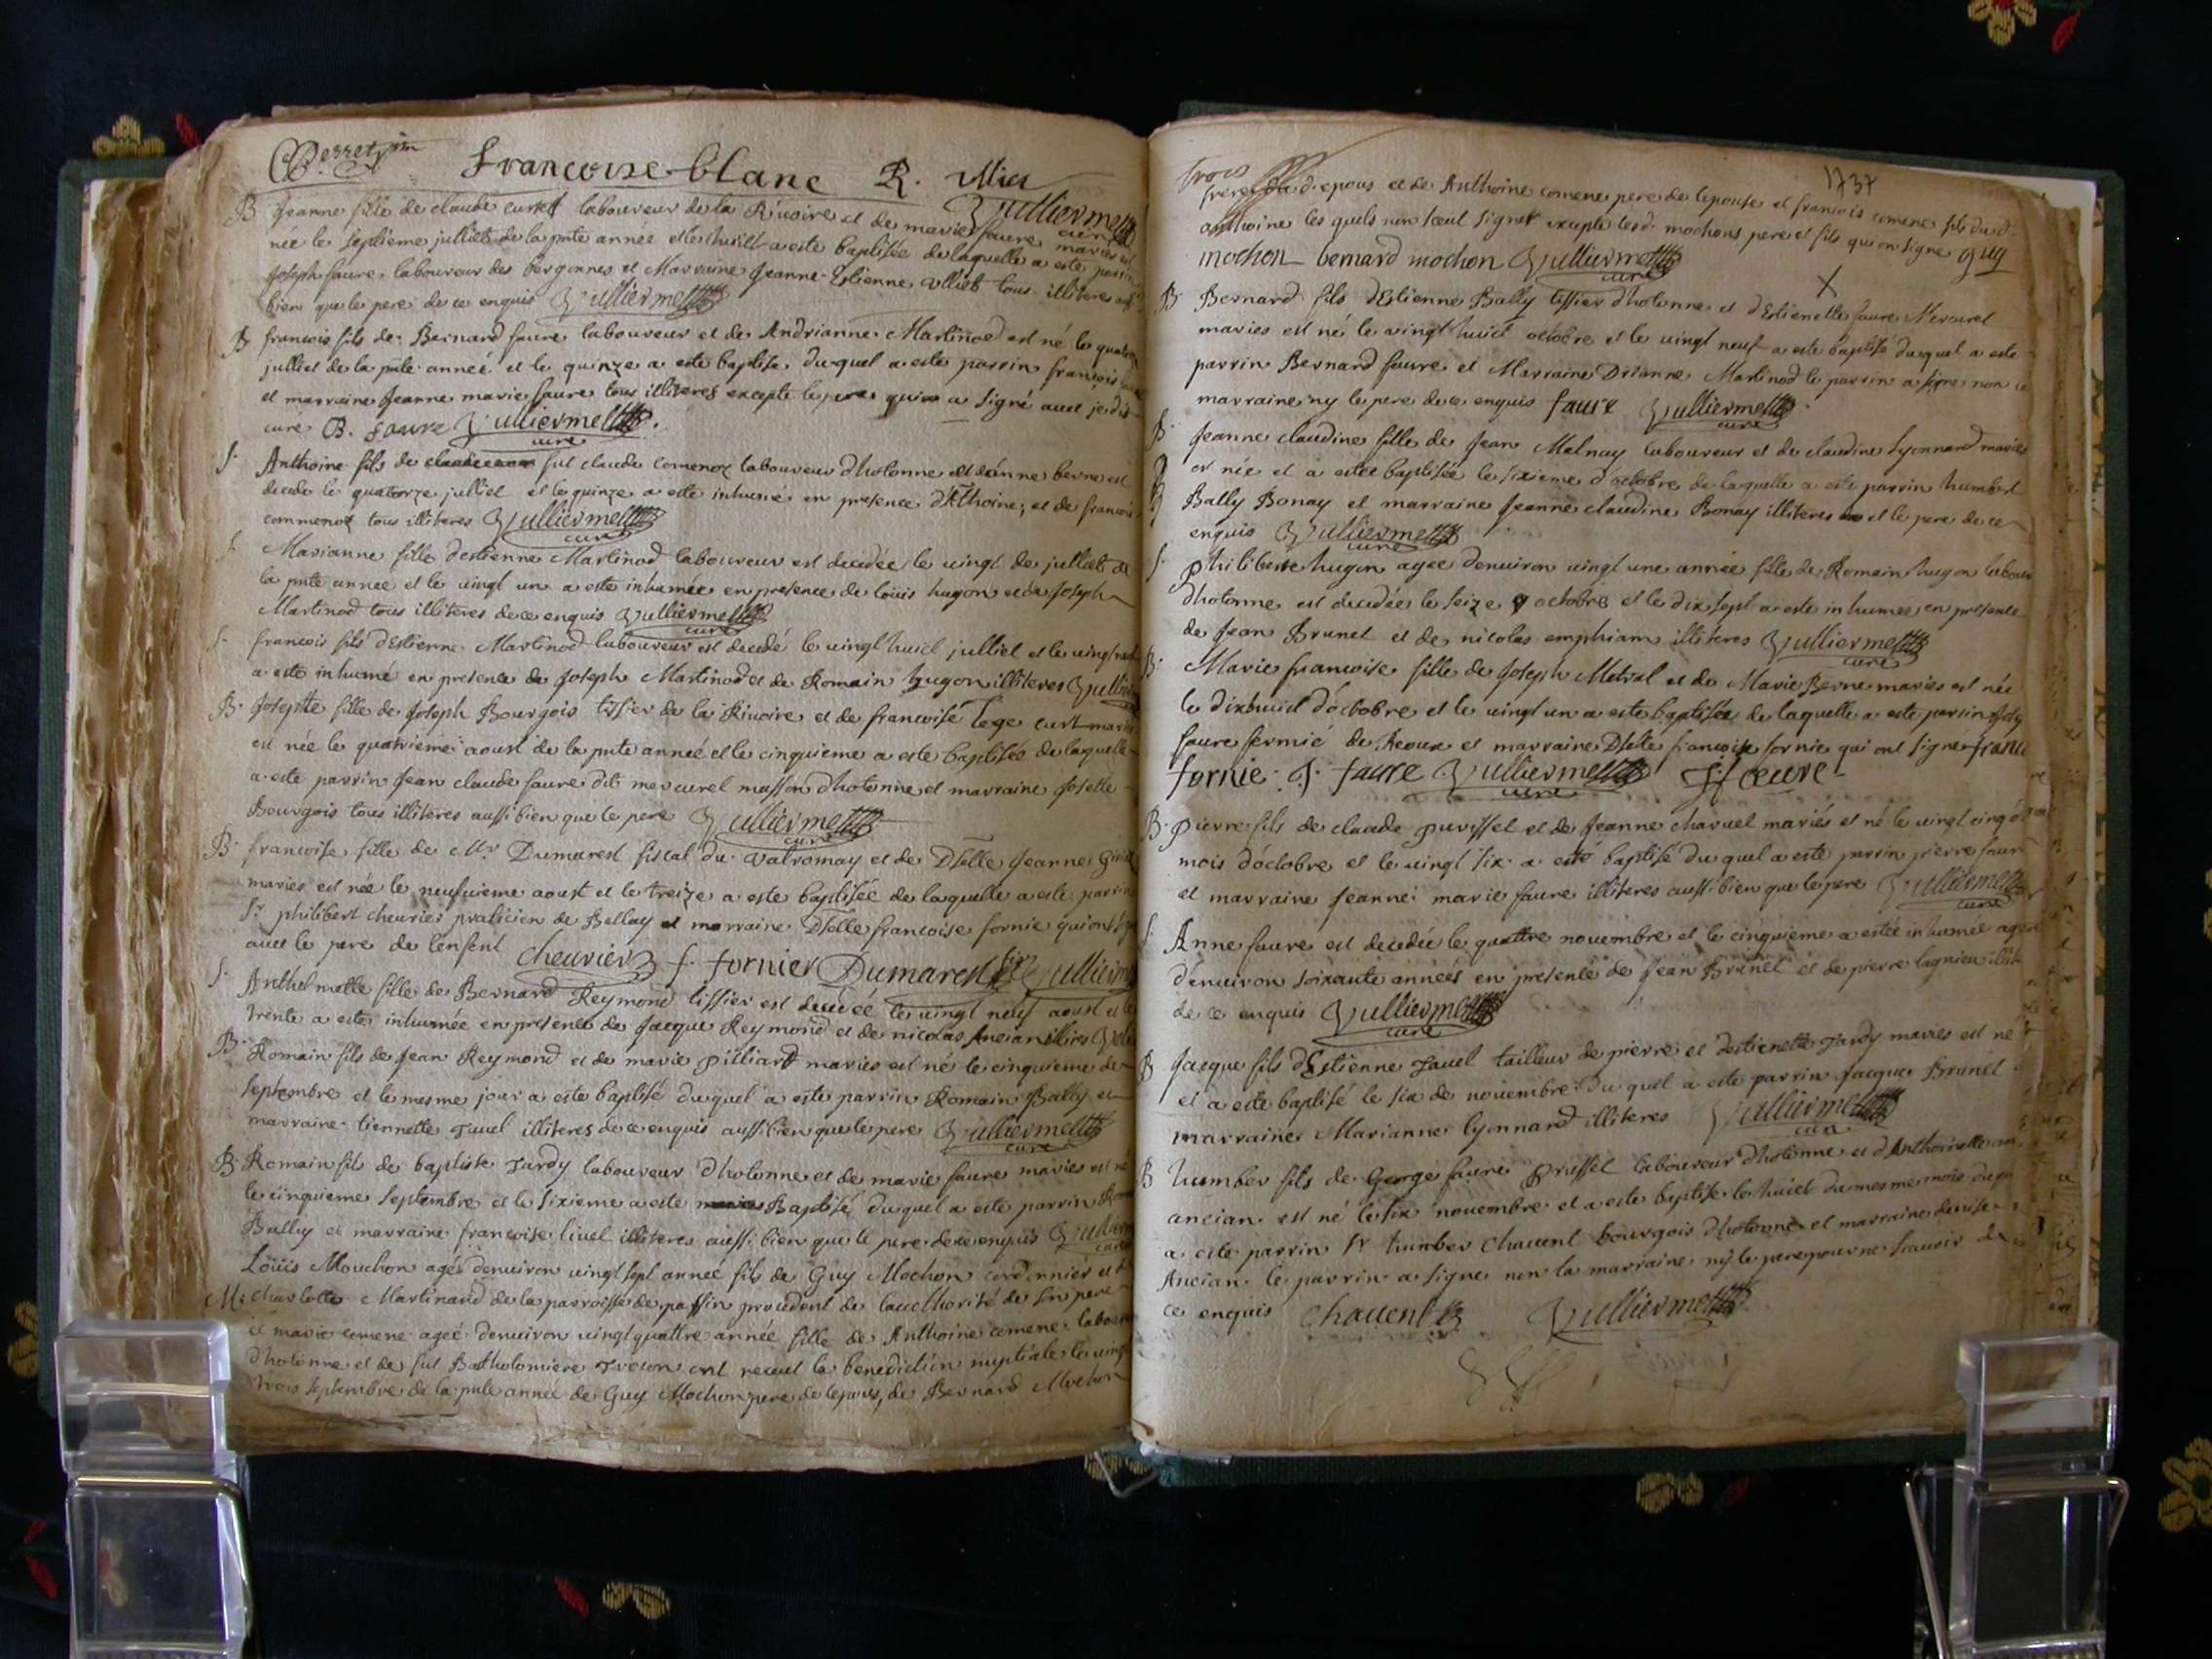 Perret
francoise blanc R. Ulliet
B Jeanne fille de claude curtet laboureur de la Rivoire et de marie faure mariés est
Vulliermet curé
née le septieme julliet de la pnte année et le huict a este baptisée de laquelle a este parrin
Joseph faure laboureur des bergonnes et Marraine Jeanne Estienne Ulliet tous illiteres
bien que le pere de ce enquis Vulliermet curé
B francois fils de Bernard faure laboureur et de Andrianne Martinod est né le
julliet de la pnte anneé et le quinze a este baptise duquel a este parrin francois
et marraine Jeanne marie faure tous illiteres excepte le pere qui a signé avec je dis
curé B. faure Vulliermet curé
S. Anthoine fils de fut claude comenoz laboureur dhotonne et danne berne est
decede le quatorze julliet et le quinze a este inhumé en presence dAthoine, et de francois
commenoz tous illiteres Vulliermet curé
S. Marianne fille destienne Martinod laboureur est decedée le vingt de julliet de
la pnte annee et le vingt un a este inhumée en presence de loüis hugon et de Joseph
Martinod tous illiteres de ce enquis Vulliermet curé
S. francois fils dEstienne Martinod laboureur est decedé le vingt huict julliet et le vingt neuf
a este inhumé en presence de Joseph Martinod et de Romain hugon illiteres
B. Josephte fille de Joseph Bourgois tissier de la Rivoire et de francoise
est née le quatrieme aoust de la pnte anneé et le cinquieme a este baptisée de laquelle
a este parrin Jean claude faure dit mercurel masson dhotonne et marraine Josette
Bourgois tous illiteres aussi bien que le pere Vulliermet curé
B. francoise fille de Mr Dumarest fiscal du valromay et de Dlle Jeanne
mariés est née le neufvieme aoust et le treize a este baptisée de laquelle a este parrin
Sr philibert chevrier praticien de Bellay et marraine Dlle francoise fornie qui ont
avec le pere de lenfent chevrier f. fornier Dumarest
S. Anthelmette fille de Bernard Reymond tissier est decedée le vingt neuf aoust et le
trente a este inhumée en presence de Jacque Reymond et de nicolas Ancian
B. Romain fils de Jean Reymond et de marie pilliard mariés est né le cinquieme de
septembre et le mesme jour a este baptisé duquel a este parrin Romain Bally et
marraine tiennette Juvel illiteres de ce enquis aussi bien que le pere Vulliermet curé
B. Romain fils de baptiste Tardy laboureur dhotonne et de marie faure mariés est né
le cinquieme septembre et le sixieme a este Baptisé duquel a este parrin
Bally et marraine francoise livel illiteres aussi bien que le pere de ce enquis
Loüis Mouchon agé denviron vingt sept anneé fils de Guy Mochon cordonnier et de
M: charlotte Martinand de la parroisse de passin procedant de laucthorité de son pere
et marie comene ageé denviron vingt quattre année fille de Anthoine comene
dhotonne et de fut Batholomiere ont receut la benediction nuptiale le vingt
trois septembre de la pnte année de Guy Mochon pere de lepoux, de Bernard Mochon
trois
1737
frere du d. epous et de Anthoine comene pere de lepouse et francois comene fils dud.
anthoine les quels non sceut signer excepte lesd. mochons pere et fils qui on signe guy
mochon bernard mochon Vulliermet curé
B. Bernard fils dEstienne Bally tissier dhotonne et dEstienette faure Mercurel
mariés est né le vingt huict octobre et le vingt neuf a este baptisé duquel a este
parrin Bernard faure et Marraine Martinod le parrin a signe non la
marraine ny le pere de ce enquis faure Vulliermet curé
B. Jeanne claudine fille de Jean Melnay laboureur et de claudine lyonnard mariés
et née et a esteé baptisée le sixieme d'octobre de laquelle a este parrin humbert
Bally Bonay et marraine Jeanne claudine Bonay illiteres et le pere de ce
enquis Vulliermet curé
S. philiberte hugon agee denviron vingt une année fille de Romain hugon
dhotonne est decedée le seize octobre et le dix sept a este inhumee en presence
de Jean Brunet et de nicolas emphiam illiteres Vulliermet curé
B. Marie francoise fille de Joseph Metral et de Marie Berne mariés est née
le dixhuict d'octobre et le vingt un a este baptisée de laquelle a este parrin
faure fermié de et marraine Dlle francoise fornie qui ont signé
fornie J. faure Vulliermet curé
B. pierre fils de claude et de Jeanne charvel mariés et né le vingt cinq
mois d'octobre et le vingt six a esté baptisé du quel a este parrin pierre faure
et marraine Jeanne marie faure illiteres aussi bien que le pere Vulliermet curé
S. Anne faure est decedée le quattre novembre et le cinquieme a estée inhumée
d'environ soixante années en presence de Jean Brunet et de pierre lagnieu
de ce enquis Vulliermet curé
B Jacque fils dEstienne Juvel tailleur de pierre et destienette Tardy mariés est né
et a este baptisé le six de novembre du quel a este parrin Jacque Brunet
marraine Marianne lyonnard illiteres Vulliermet
B humber fils de George faure laboureur dhotonne et dAnthoinette
ancian est né le six novembre et a este baptise le huict du mesme mois
a este parrin Sr humber chavent bourgois dhotonne et marraine denise
Ancian le parrin a signe non la marraine ny le pere pour ne scavoir de
ce enquis chavent Vulliermet